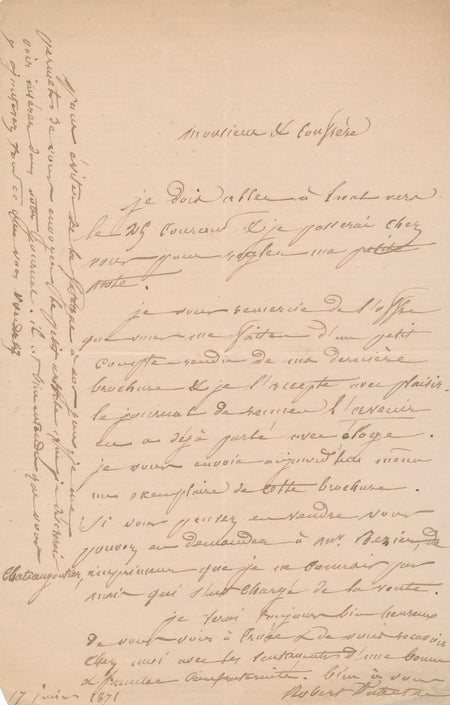 Monsieur & Confrère
je dois aller à Laval vers
le 25 courant & je passerai chez
vous pour régler ma petite
note.
je vous remercie de l'offre
que vous me faites d'un petit
compte rendu de ma dernière
brochure & je l'accepte avec plaisir.
le journal de Rennes l'avenir
en a déjà parlé avec éloge.
je vous envoie aujourd'hui même
un exemplaire de cette brochure.
Si vous pensez en vendre vous
pouvez en demander à Mr. Bezier, de
Châteaugontier, imprimeur que je ne connais pas
mais qui s'est chargé de la vente.
je serai toujours bien heureux
de vous voir à & de vous recevoir
chez moi avec les sentiments d'une bonne
& confraternité. bien à vous
Robert
17 1871
Pour éviter de la à un je me
permets de vous envoyer le petit article que je
voir insérer dans votre journal. il est bien entendu que vous
y ajouterez tout ce que vous voudrez